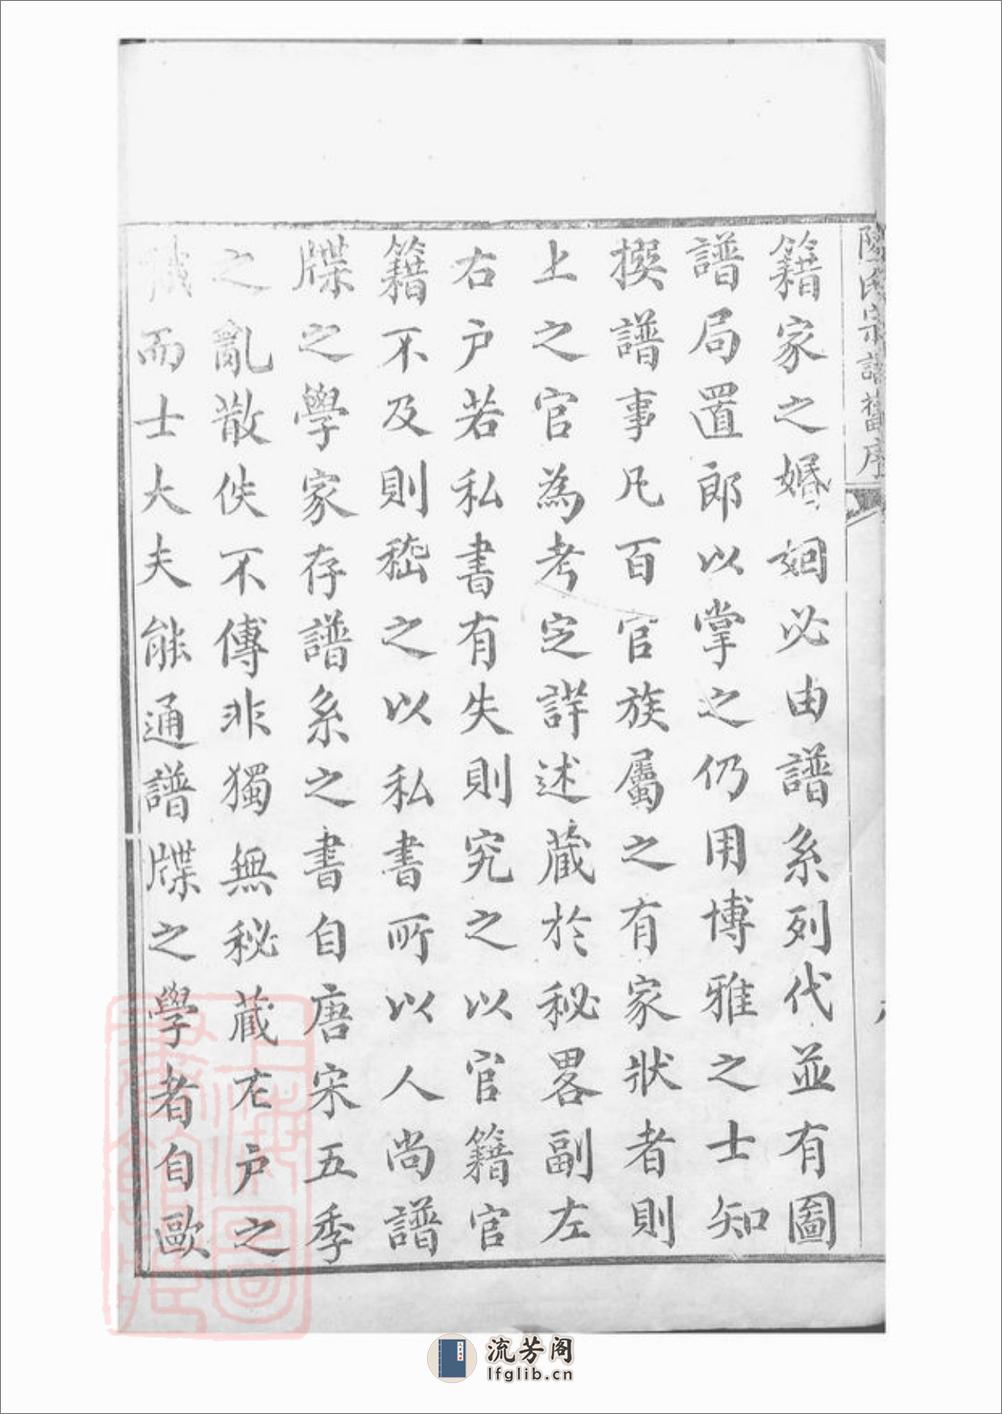 陳氏宗譜舊序
籍家之婚姻必由譜系列代並有圖
譜局置郎以掌之仍用博雅之士知
撰譜事凡百官族屬之有家狀者則
上之官為考定詳述藏於秘畧副左
右户若私書有失則究之以官籍官
籍不及則嵇之以私書所以人尚譜
牒之學家存譜系之書自唐宋五季
之亂散佚不傳非獨無秘藏左户之
而士大夫能通譜牒之學者自歐
流芳阁
lfglib.cn